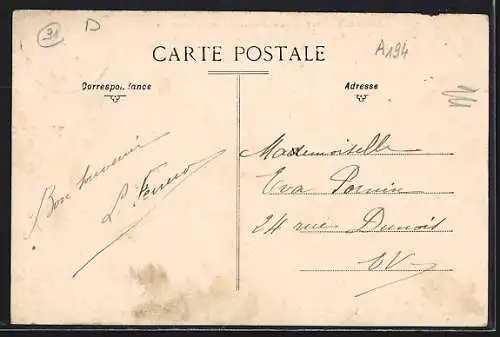 91
D
CARTE POSTALE
A194
Correspondance
Adresse
Bon souvenir
L.
Mademoiselle
Eva
24 rue Dunois
EV